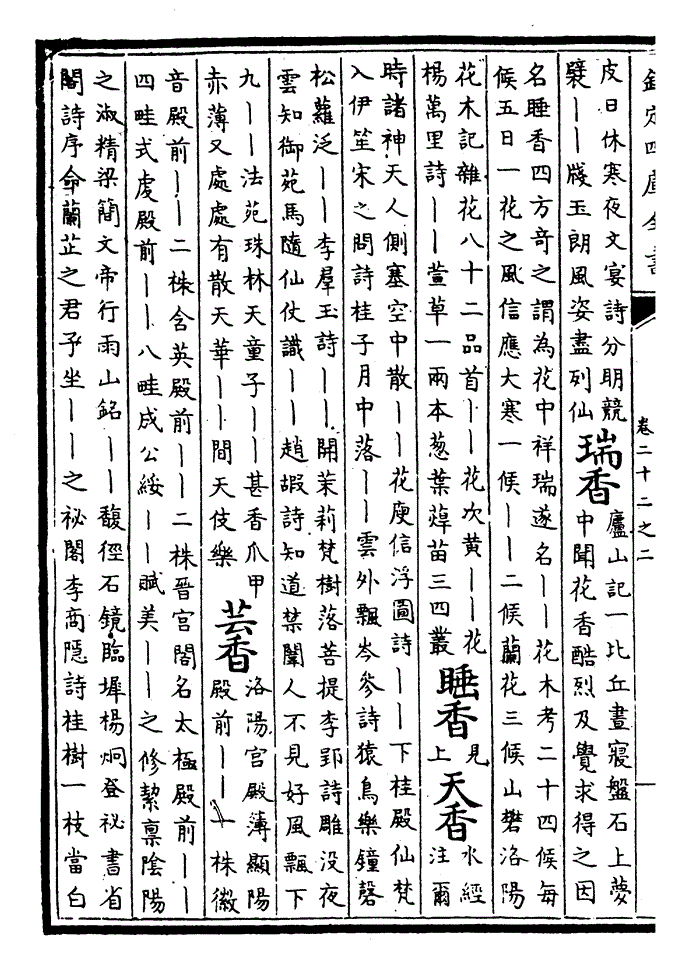 欽定四庫全書
卷二十二之二
皮日休寒夜文宴詩分明競
襞——牋玉朗風姿盡列仙
瑞香
廬山記一比丘晝寢盤石上夢
中聞花香酷烈及覺求得之因
名睡香四方奇之謂為花中祥瑞遂名——花木考二十四候每
候五日一花之風信應大寒一候——二候蘭花三候山礬洛陽
花木記雜花八十二品首——花次黄——花
楊萬里詩——萱草一兩本葱葉薤苗三四叢
睡香
見
上
天香
水經
注爾
時諸神天人側塞空中散——花庾信浮圖詩——下桂殿仙梵
入伊笙宋之問詩桂子月中落——雲外飄岑參詩猿鳥樂鐘磬
松蘿泛——李羣玉詩——開茉莉梵樹落菩提李郢詩雕没夜
雲知御苑馬隨仙仗識——趙嘏詩知道禁闈人不見好風飄下
九——法苑珠林天童子——甚香爪甲
赤薄又處處有散天華——間天伎樂
芸香
洛陽宫殿簿顯陽
殿前——一株徽
音殿前——二株含英殿前——二株晉宫閣名太極殿前——
四畦式虔殿前——八畦成公綏——賦美——之修潔禀陰陽
之淑精梁簡文帝行雨山銘——馥徑石鏡臨墀楊炯登祕書省
閣詩序命蘭芷之君子坐——之祕閣李商隱詩桂樹一枝當白